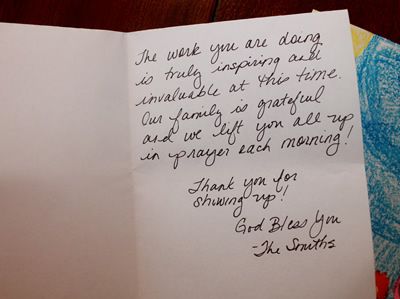 The work you are doing
is truly inspiring and
invaluable at this time.
Our family is grateful
and we lift you all up
in prayer each morning!
Thank you for
showing up!
God Bless You
-The Smiths